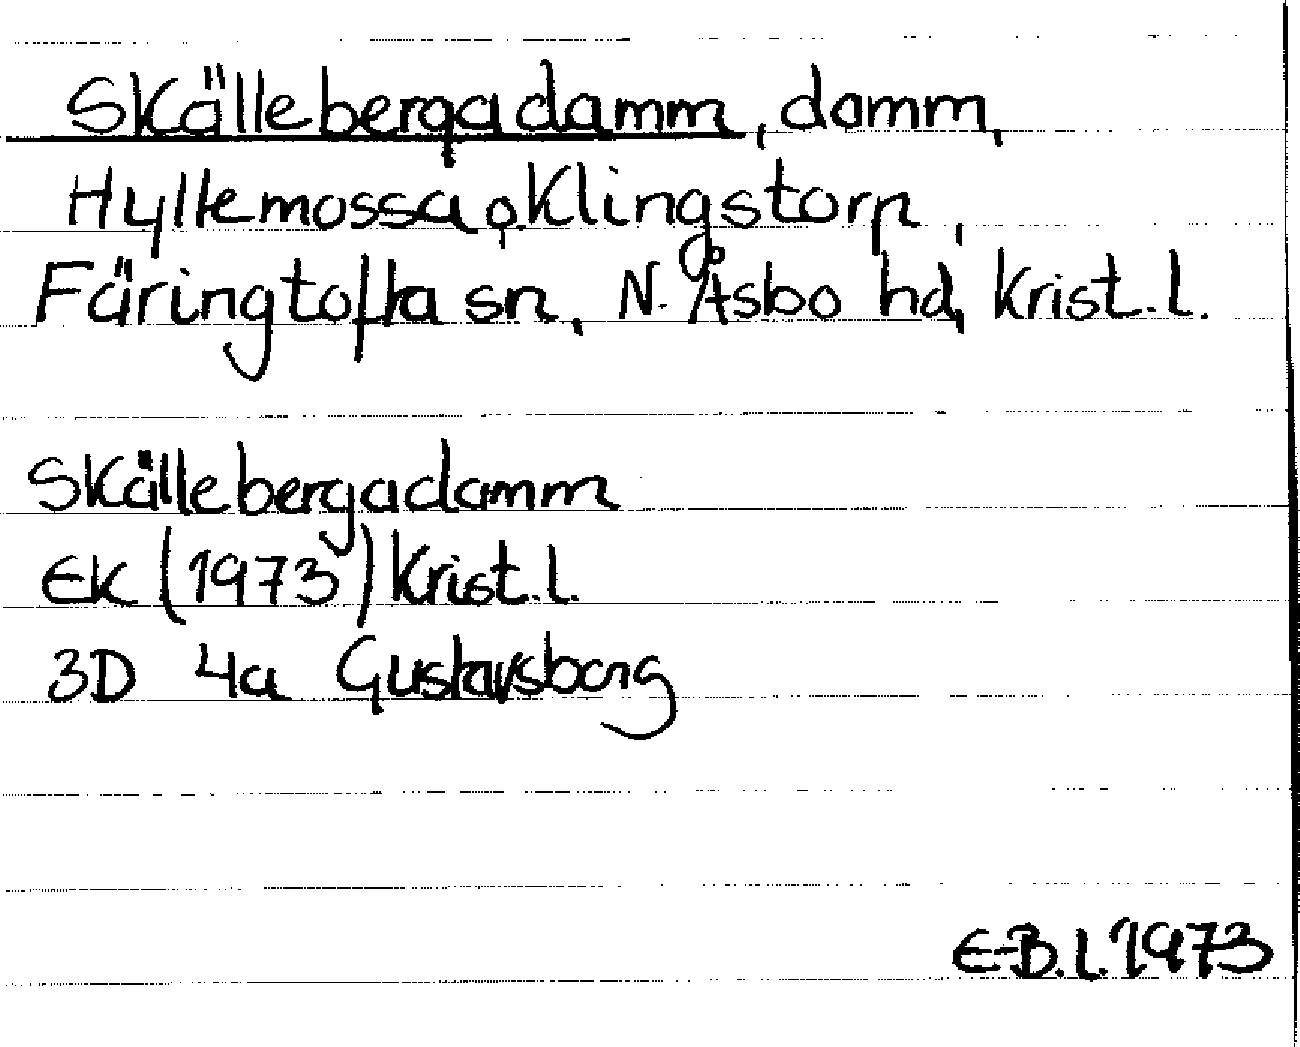 Skällebergadamm, damm,
Hyllemossa o. Klingstorp,
Färingtofta sn, N. Åsbo hd, Krist. l.
Skällebergadamm
EK (1973) Krist. l.
3D 4a Gustavsborg
E-B. L. 1973